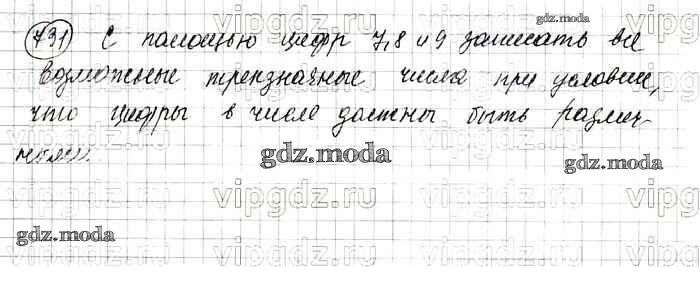 731 С помощью цифр 7,8 и 9 записать все
возможные трехзначные числа при условии,
что цифры в числе должны быть различ-
ными.
gdz.moda
gdz.moda
gdz.moda
gdz.moda
vipgdz.ru